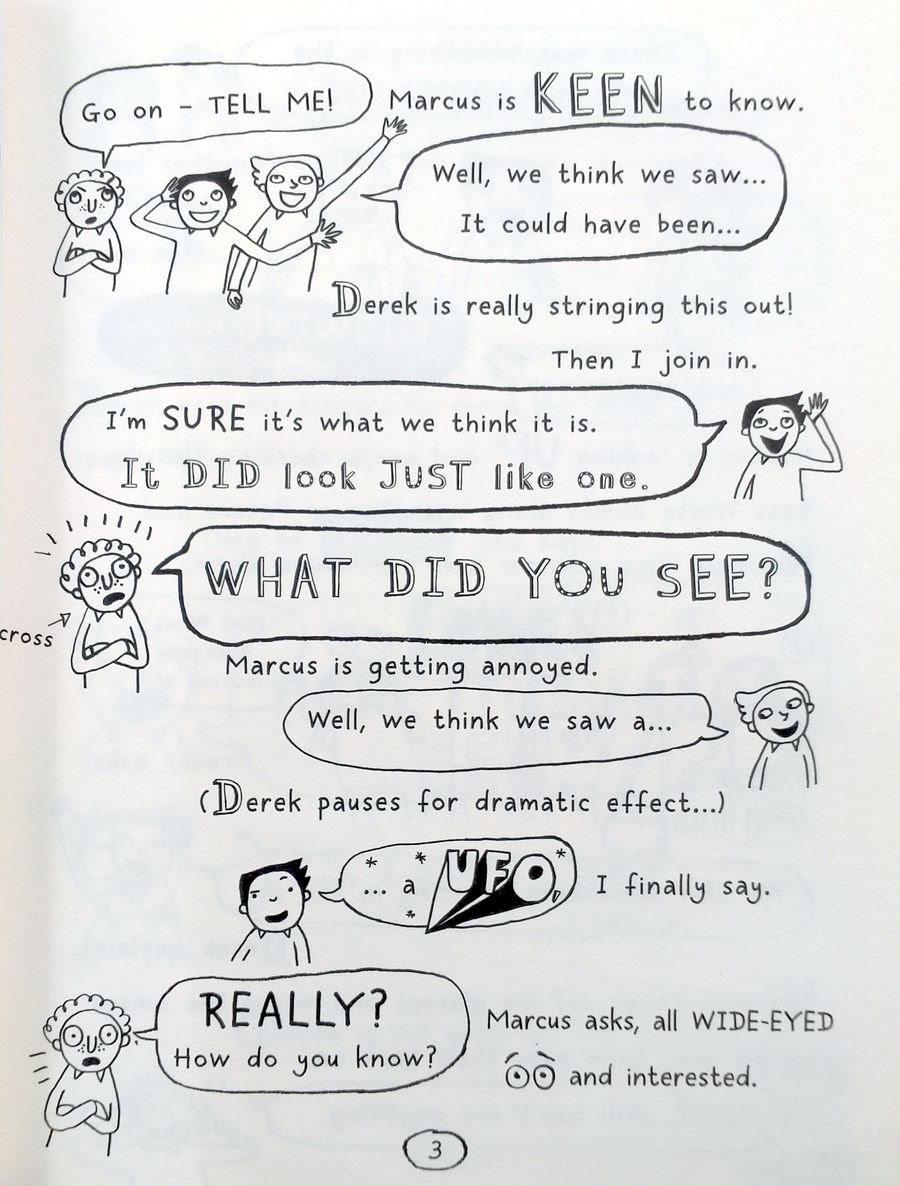 Go on - TELL ME!
Marcus is KEEN to know.
Well, we think we saw...
It could have been...
Derek is really stringing this out!
Then I join in.
I'm SURE it's what we think it is.
It DID look JUST like one.
WHAT DID YOU SEE?
cross
Marcus is getting annoyed.
Well, we think we saw a...
(Derek pauses for dramatic effect...)
... a UFO,
I finally say.
REALLY?
How do you know?
Marcus asks, all WIDE-EYED
and interested.
3